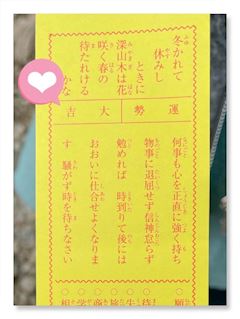 冬かれて
休みし
ときに
深山木は花
咲く春の
待たれける
かな
運勢
大吉
何事も心を正直に強く持ち
物事に退屈せず信神怠らず
勉めれば 時到りて後には
おおいに仕合せよくなりま
す 騒がず時を待ちなさい